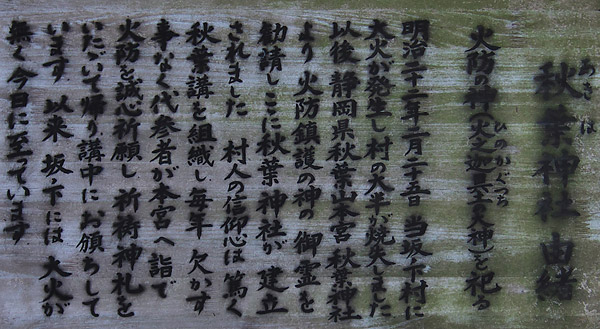 あきは
秋葉神社 由緒
ひのかぐつち
火防の神(火之迦具土大神)を祀る
明治二十二年二月二十五日 当坂下村に
大火が発生し村の大半が焼失しました
以後 静岡県秋葉山本宮 秋葉神社
より 火防鎮護の神の 御霊を
勧請しここに秋葉神社が 建立
されました 村人の信仰心は篤く
秋葉講を組織し 毎年 欠かす
事なく代参者が本宮へ詣で
火防を誠心祈願し 祈祷神札を
いただいて帰り 講中にお頒ちして
います 以来 坂下には 大火が
無く今日に至っています